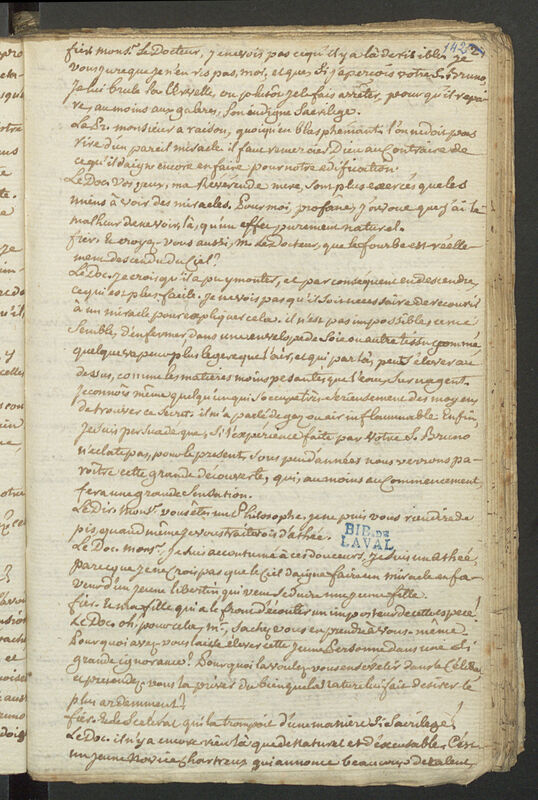 142
fier. mons.r Le Docteur, je ne vois pas ce qu'il y a là de risible; je
vous jure que je n'en ris pas, moi, et que si j'aperçois votre S. Bruno,
je lui brule la Cervelle, ou plutôt je le fais arrêter, pour qu'il expie
au moins aux galeres, son indigne Sacrilege.
Le Pr. monsieur a raison, quoiqu'en blasphemant: l'on ne doit pas
rire d'un pareil miracle il faut remercier Dieu au Contraire de
ce qu'il daigne encore en faire pour notre édification.
Le Doc. Vos yeux, ma Reverende mere, sont plus exercés que les
miens à voir des miracles. Pour moi, profâne, j'avoue que j'ai le
malheur de ne voir, là, qu'un effet purement naturel.
fier. Et croyez-vous aussi, M. Le Docteur, que le fourbe est réelle-
ment descendu du Ciel?
Le Doc. Je crois qu'il a pu y monter, et par consequent en descendre,
ce qui est plus facile. je ne vois pas qu'il soit necessaire de recourir
à un miracle pour expliquer cela. il n'est pas impossible, ce me
Semble, d'enfermer dans une enveloppe de Soie ou autre tissu gommé
quelque vapeur plus legere que l'air, et qui par là, peut s'élever au
dessus, comme les matières moins pesantes que l'eau, Surnagent.
Je connois même quelqu'un qui s'occupe très-serieusement des moyens
de trouver ce Secret. il m'a parlé de gaz ou air inflammable. Enfin,
Je suis persuadé que, si l'experience faite par Votre S. Bruno
n'éclate pas, pour le present, sous peu d'années nous verrons pa-
roître cette grande découverte, qui, au moins au Commencement,
fera une grande Sensation.
Le Dir. Mons.r, vous êtes un Philosophe, je ne puis vous rien dire de
pis, quand même je vous traiterois d'athée.
BIB. DE
LAVAL
Le Doc. mons.r, Je suis accoutumé à ces douceurs. je suis un athée,
parce que je ne Crois pas que le Ciel daigne faire un miracle en fa-
veur d'un jeune libertin qui veut Seduire une jeune fille.
fier. Et ma fille qui a le front d'écouter un imposteur de cette espece!
Le Doc. oh, pour cela, M.r, sachez vous en prendre à Vous-même.
Pourquoi avez-vous laissé élever cette jeune Personne dans une si
grande ignorance? Pourquoi la voulez-vous ensevelir dans le Célibat
et pretendez-vous la priver du bien que la nature lui fait desirer le
plus ardemment?
fier. Et le Scelerat qui la trompoit d'une manière si Sacrilège!
Le Doc. il n'y a encore rien là que de naturel et d'excusable. C'est
un jeune Novice Chartreux qui annonce beaucoup de talent,